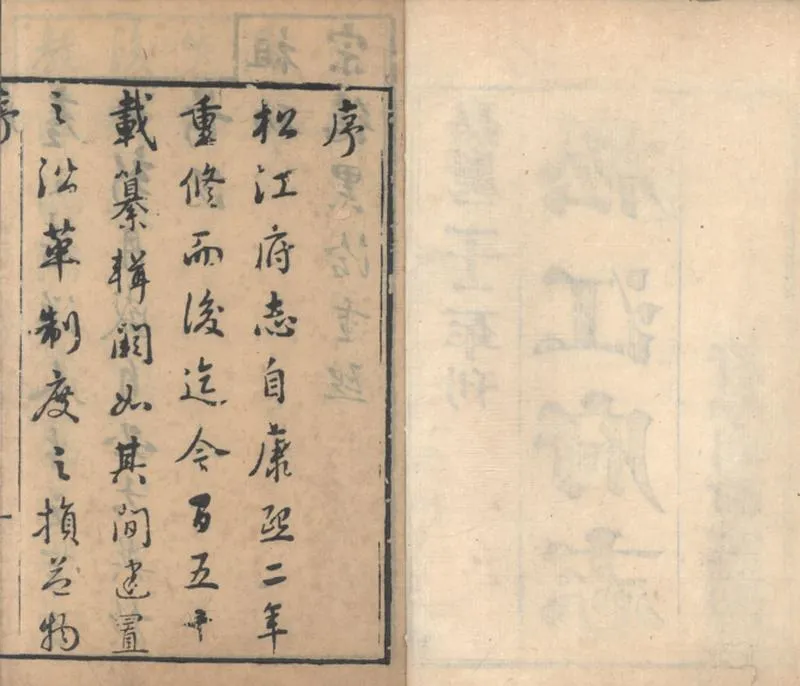 序
松江府志自康熙二年
重修而後迄今百五十
載纂輯闕如其間建置
之沿革制度之損益物
序